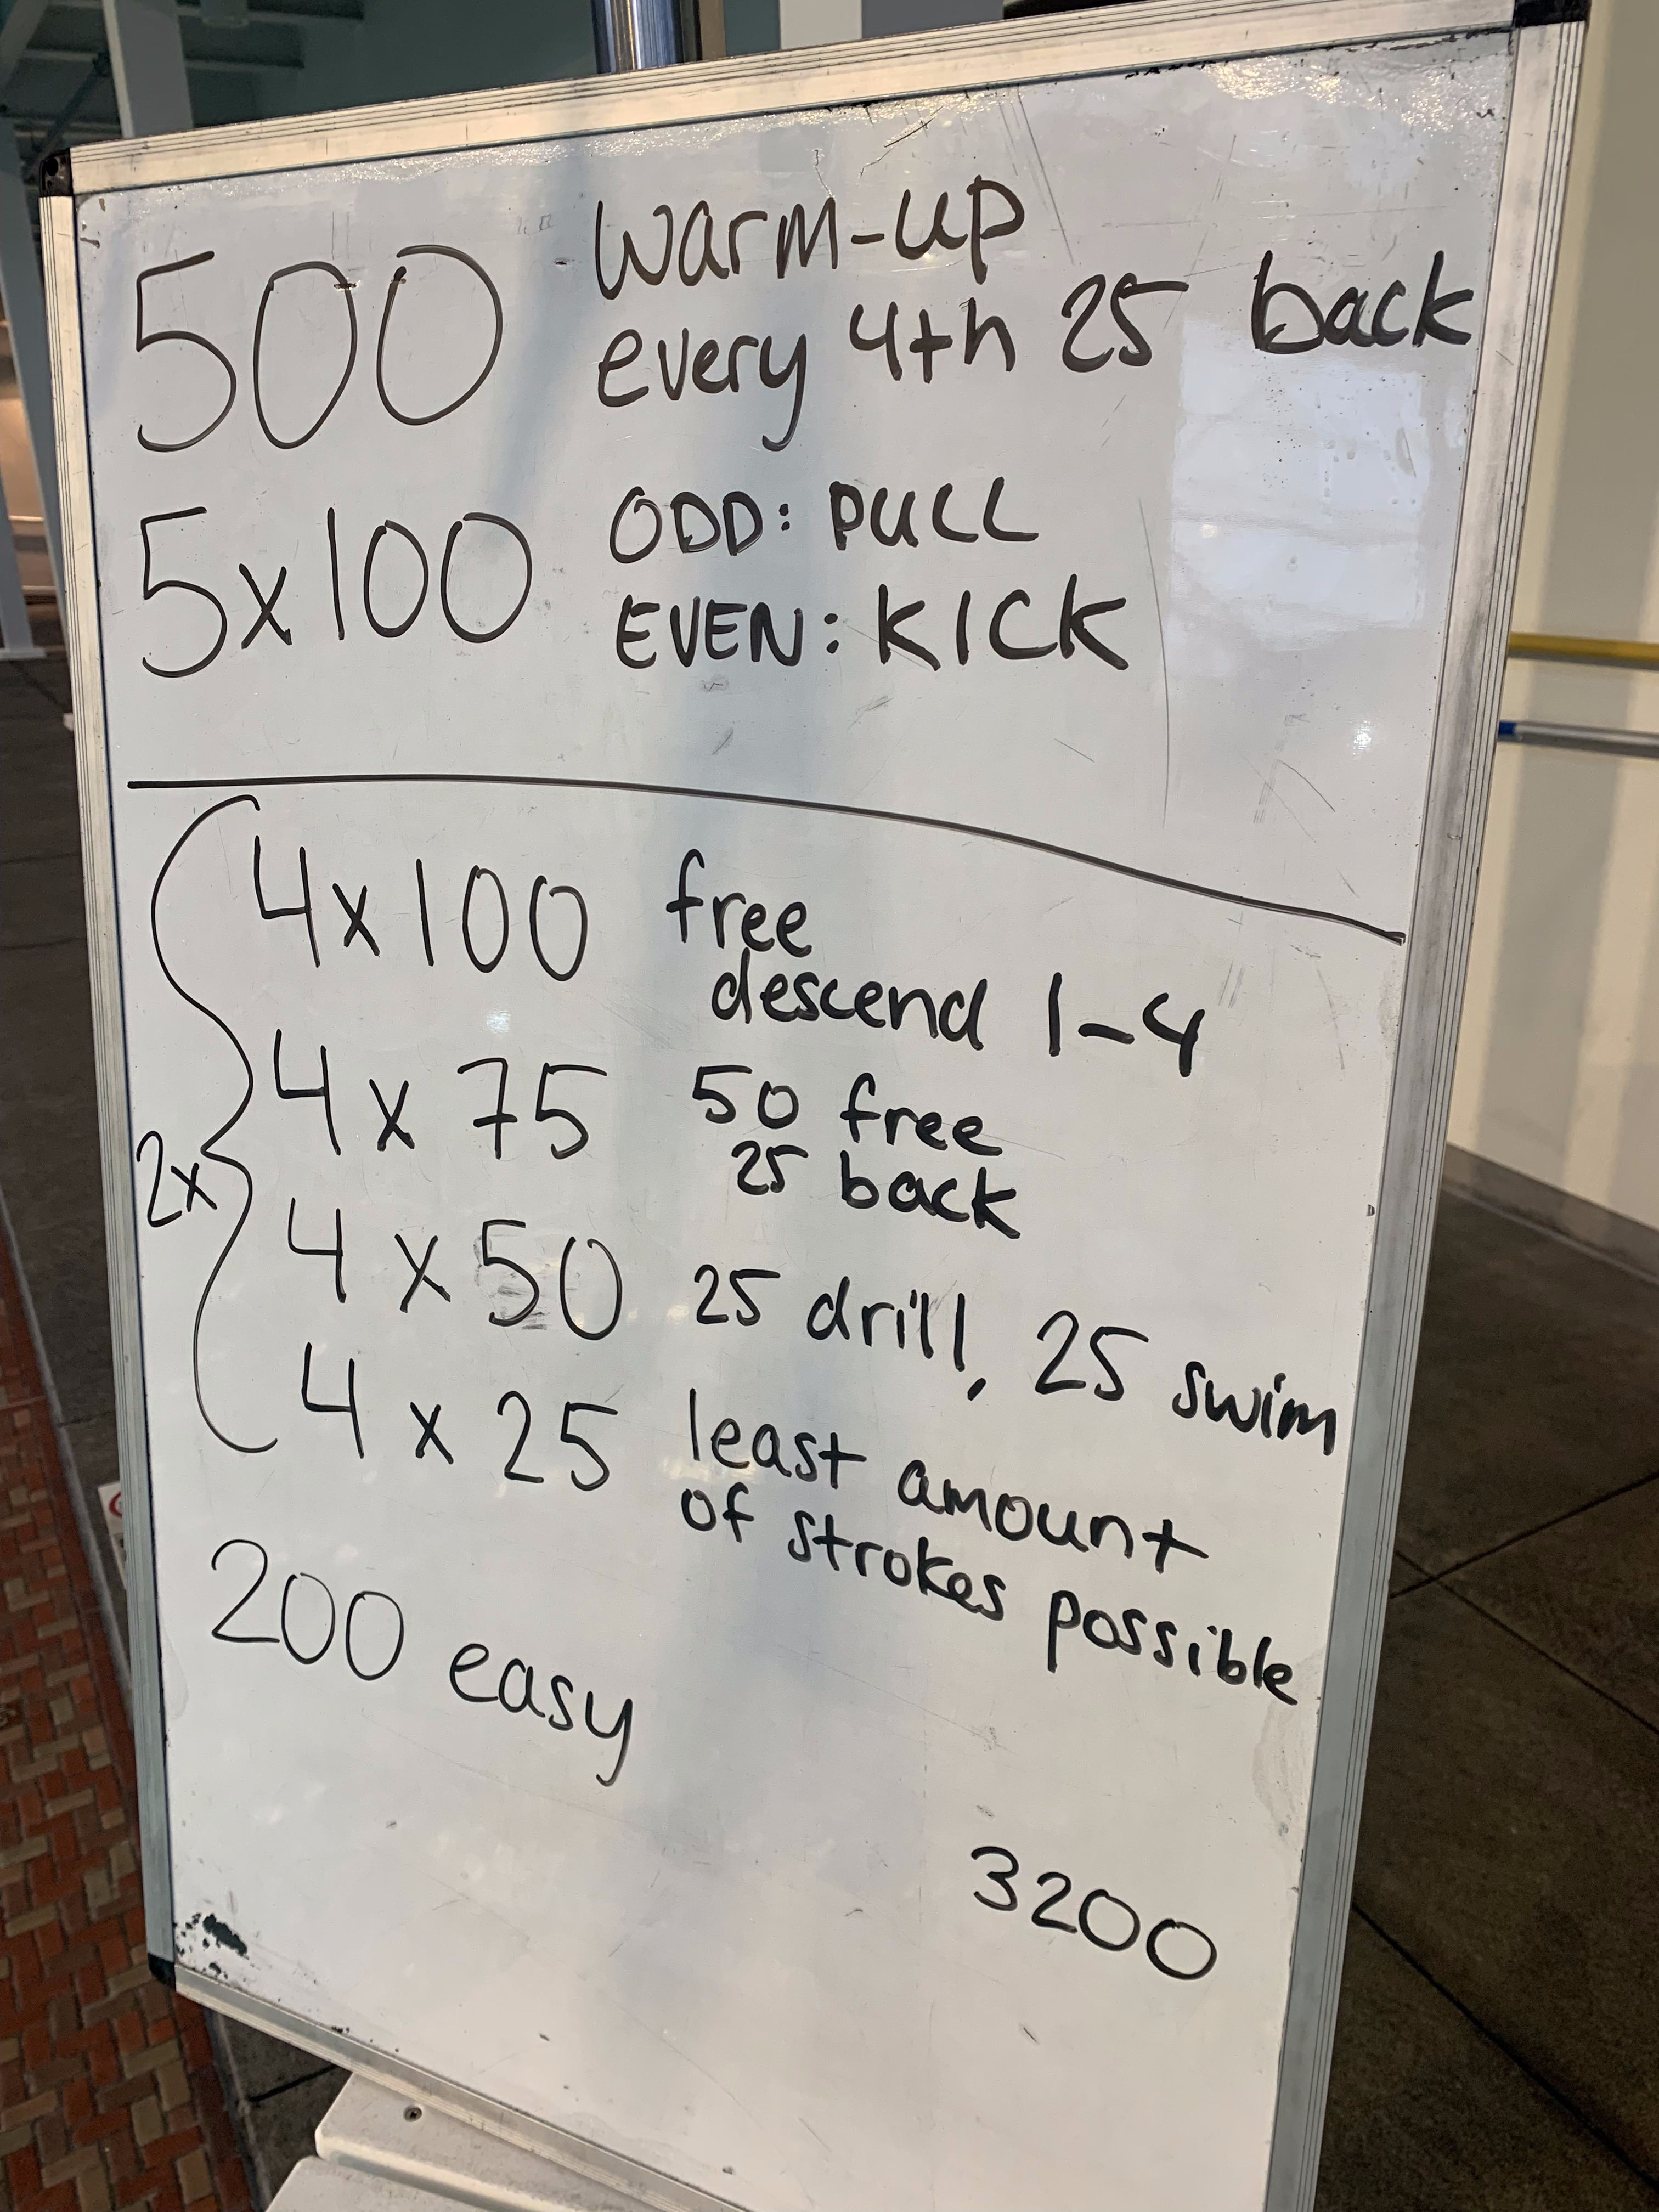 500 warm-up
every 4th 25 back
5x100 ODD: PULL
EVEN: KICK
2x
4x100 free
descend 1-4
4x 75 50 free
25 back
4x50 25 drill, 25 swim
4x25 least amount
of strokes possible
200 easy
3200